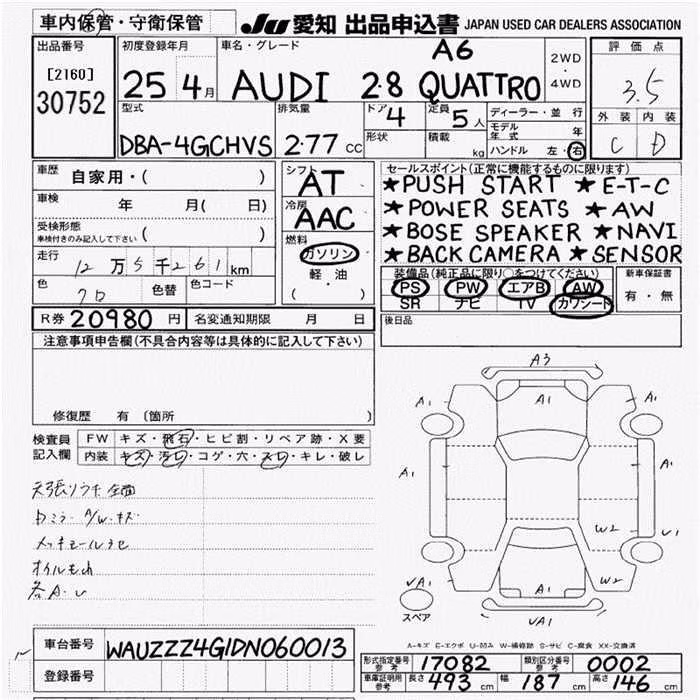 車内保管・守衛保管
JU 愛知 出品申込書 JAPAN USED CAR DEALERS ASSOCIATION
出品番号
[2160]
30752
初度登録年月
25 4月
車名・グレード
A6
AUDI 2.8 QUATTRO
2WD
・
4WD
評価点
3.5
外装 内装
C D
型式
DBA-4GCHVS
排気量
2.77 CC
ドア 4
定員 5人
形状
積載 kg
ディーラー・並行
モデル年式 年
ハンドル 左・右
車歴
自家用・( )
車検 年 月( 日)
受検形態
車検付きのみ記入して下さい ( )
走行
12万5千261km
色 クロ 色替 色コード
シフト
AT
冷房
AAC
燃料
ガソリン
軽・油
( )
セールスポイント(正常に機能するものに限ります)
★PUSH START ★E-T-C
★POWER SEATS ★AW
★BOSE SPEAKER ★NAVI
★BACK CAMERA ★SENSOR
装備品(純正品に限り○をつけてください)
PS PW エアB AW
SR ナビ TV カワシート
新車保証書
有・無
R券 20980円 名変通知期限 月 日
後日品
注意事項申告欄(不具合内容等は具体的に記入して下さい)
修復歴 有 〔箇所
検査員
記入欄
FW キズ・飛石・ヒビ割・リペア跡・X要
内装 キズ・汚レ・コゲ・穴・スレ・キレ・破レ
A/W.キズ
A3
A1 A1 A1
A1 A1
W2 U1
W2
A1
VA1
VA1
スペア
A-キズ E-エクボ U-凹み W-補修跡 S-サビ C-腐食 XX-交換済
車台番号 WAUZZZ4G1DN060013
登録番号
形式指定番号 参考 17082 類別区分番号 参考 0002
車庫証明用 参考 長さ 493 cm 幅 187 cm 高さ 146 cm